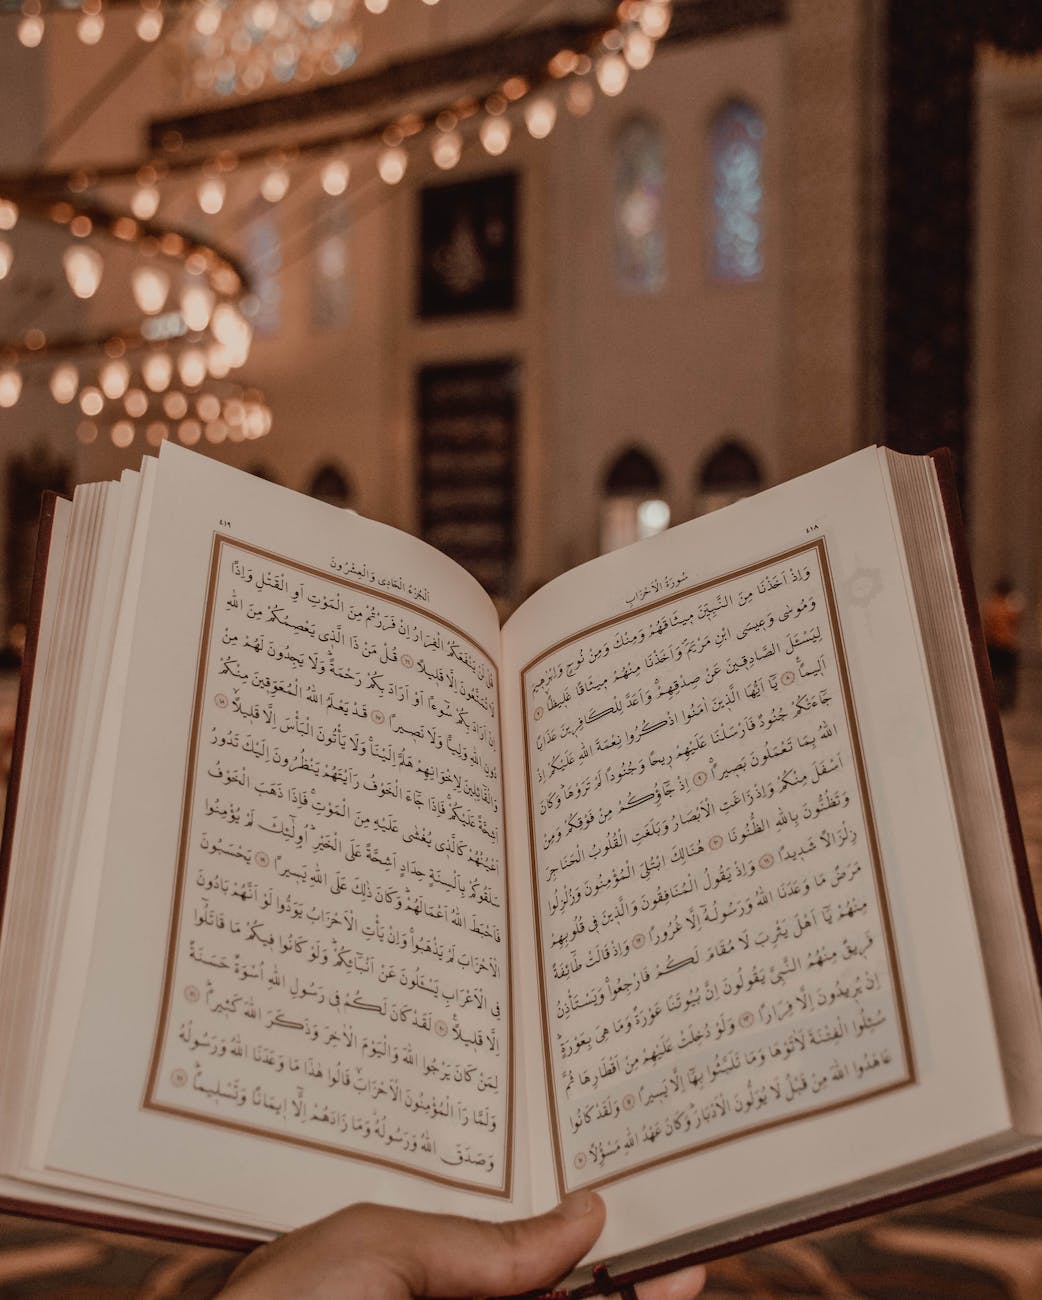 ٤١٨
سُورَةُ الْاَحْزَابِ
وَاِذْ اَخَذْنَا مِنَ النَّبِيّٖنَ مٖيثَاقَهُمْ وَمِنْكَ وَمِنْ نُوحٍ وَاِبْرٰهٖيمَ
وَمُوسٰى وَعٖيسَى ابْنِ مَرْيَمَ وَاَخَذْنَا مِنْهُمْ مٖيثَاقًا غَلٖيظًا ٧
لِيَسْـَٔلَ الصَّادِقٖينَ عَنْ صِدْقِهِمْ وَاَعَدَّ لِلْكَافِرٖينَ عَذَابًا
اَلٖيمًا ٨ يَٓا اَيُّهَا الَّذٖينَ اٰمَنُوا اذْكُرُوا نِعْمَةَ اللّٰهِ عَلَيْكُمْ اِذْ
جَٓاءَتْكُمْ جُنُودٌ فَاَرْسَلْنَا عَلَيْهِمْ رٖيحًا وَجُنُودًا لَمْ تَرَوْهَا وَكَانَ
اللّٰهُ بِمَا تَعْمَلُونَ بَصٖيرًا ٩ اِذْ جَٓاؤُ۫كُمْ مِنْ فَوْقِكُمْ وَمِنْ
اَسْفَلَ مِنْكُمْ وَاِذْ زَاغَتِ الْاَبْصَارُ وَبَلَغَتِ الْقُلُوبُ الْحَنَاجِرَ
وَتَظُنُّونَ بِاللّٰهِ الظُّنُونَا ١٠ هُنَالِكَ ابْتُلِيَ الْمُؤْمِنُونَ وَزُلْزِلُوا
زِلْزَالًا شَدٖيدًا ١١ وَاِذْ يَقُولُ الْمُنَافِقُونَ وَالَّذٖينَ فٖي قُلُوبِهِمْ
مَرَضٌ مَا وَعَدَنَا اللّٰهُ وَرَسُولُهُٓ اِلَّا غُرُورًا ١٢ وَاِذْ قَالَتْ طَٓائِفَةٌ
مِنْهُمْ يَٓا اَهْلَ يَثْرِبَ لَا مُقَامَ لَكُمْ فَارْجِعُوا وَيَسْتَأْذِنُ
فَرٖيقٌ مِنْهُمُ النَّبِيَّ يَقُولُونَ اِنَّ بُيُوتَنَا عَوْرَةٌ وَمَا هِيَ بِعَوْرَةٍ
اِنْ يُرٖيدُونَ اِلَّا فِرَارًا ١٣ وَلَوْ دُخِلَتْ عَلَيْهِمْ مِنْ اَقْطَارِهَا ثُمَّ
سُئِلُوا الْفِتْنَةَ لَاٰتَوْهَا وَمَا تَلَبَّثُوا بِهَٓا اِلَّا يَسٖيرًا ١٤ وَلَقَدْ كَانُوا
عَاهَدُوا اللّٰهَ مِنْ قَبْلُ لَا يُوَلُّونَ الْاَدْبَارَ وَكَانَ عَهْدُ اللّٰهِ مَسْؤُ۫لًا ١٥
٤١٩
اَلْجُزْءُ الْحَادٖي وَالْعِشْرُونَ
قُلْ لَنْ يَنْفَعَكُمُ الْفِرَارُ اِنْ فَرَرْتُمْ مِنَ الْمَوْتِ اَوِ الْقَتْلِ وَاِذًا
لَا تُمَتَّعُونَ اِلَّا قَلٖيلًا ١٦ قُلْ مَنْ ذَا الَّذٖي يَعْصِمُكُمْ مِنَ اللّٰهِ
اِنْ اَرَادَ بِكُمْ سُٓوءًا اَوْ اَرَادَ بِكُمْ رَحْمَةً وَلَا يَجِدُونَ لَهُمْ مِنْ
دُونِ اللّٰهِ وَلِيًّا وَلَا نَصٖيرًا ١٧ قَدْ يَعْلَمُ اللّٰهُ الْمُعَوِّقٖينَ مِنْكُمْ
وَالْقَٓائِلٖينَ لِاِخْوَانِهِمْ هَلُمَّ اِلَيْنَا وَلَا يَأْتُونَ الْبَأْسَ اِلَّا قَلٖيلًا ١٨
اَشِحَّةً عَلَيْكُمْ فَاِذَا جَٓاءَ الْخَوْفُ رَاَيْتَهُمْ يَنْظُرُونَ اِلَيْكَ تَدُورُ
اَعْيُنُهُمْ كَالَّذٖي يُغْشٰى عَلَيْهِ مِنَ الْمَوْتِ فَاِذَا ذَهَبَ الْخَوْفُ
سَلَقُوكُمْ بِاَلْسِنَةٍ حِدَادٍ اَشِحَّةً عَلَى الْخَيْرِ اُو۬لٰٓئِكَ لَمْ يُؤْمِنُوا
فَاَحْبَطَ اللّٰهُ اَعْمَالَهُمْ وَكَانَ ذٰلِكَ عَلَى اللّٰهِ يَسٖيرًا ١٩ يَحْسَبُونَ
الْاَحْزَابَ لَمْ يَذْهَبُوا وَاِنْ يَأْتِ الْاَحْزَابُ يَوَدُّوا لَوْ اَنَّهُمْ بَادُونَ
فِي الْاَعْرَابِ يَسْـَٔلُونَ عَنْ اَنْبَٓائِكُمْ وَلَوْ كَانُوا فٖيكُمْ مَا قَاتَلُٓوا
اِلَّا قَلٖيلًا ٢٠ لَقَدْ كَانَ لَكُمْ فٖي رَسُولِ اللّٰهِ اُسْوَةٌ حَسَنَةٌ
لِمَنْ كَانَ يَرْجُوا اللّٰهَ وَالْيَوْمَ الْاٰخِرَ وَذَكَرَ اللّٰهَ كَثٖيرًا ٢١
وَلَمَّا رَاَ الْمُؤْمِنُونَ الْاَحْزَابَ قَالُوا هٰذَا مَا وَعَدَنَا اللّٰهُ وَرَسُولُهُ
وَصَدَقَ اللّٰهُ وَرَسُولُهُ وَمَا زَادَهُمْ اِلَّٓا اٖيمَانًا وَتَسْلٖيمًا ٢٢